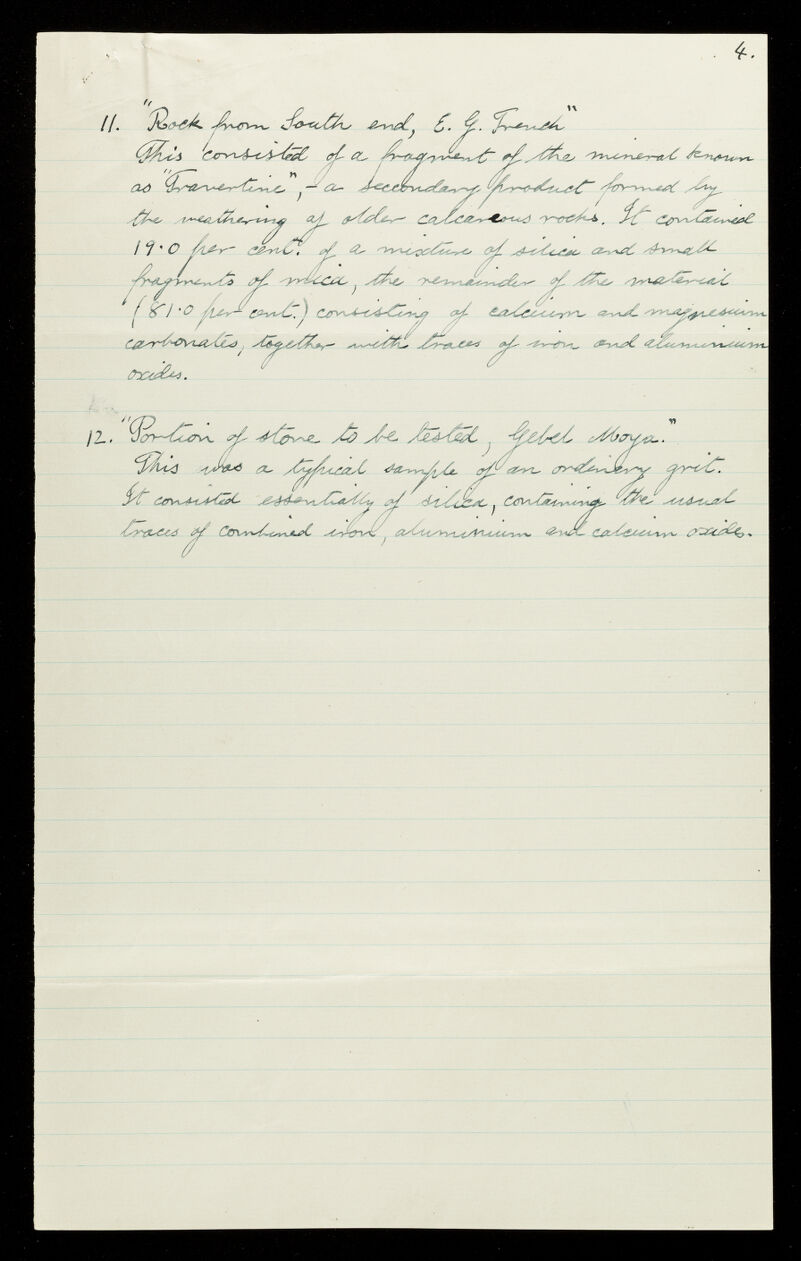 4.
11. "Rock from South end, E. G. Trench"
This consisted of a fragment of the mineral known
as "Travertine", - a secondary product formed by
the weathering of older calcareous rocks. It contained
19·0 per cent. of a mixture of silica and small
fragments of mica, the remainder of the material
(81·0 per cent.) consisting of calcium and magnesium
carbonates, together with traces of iron and aluminium
oxides.
12. "Portion of stone to be tested, Gebel Moya."
This was a typical sample of an ordinary grit.
It consisted essentially of silica, containing the usual
traces of combined iron, aluminium and calcium oxides.